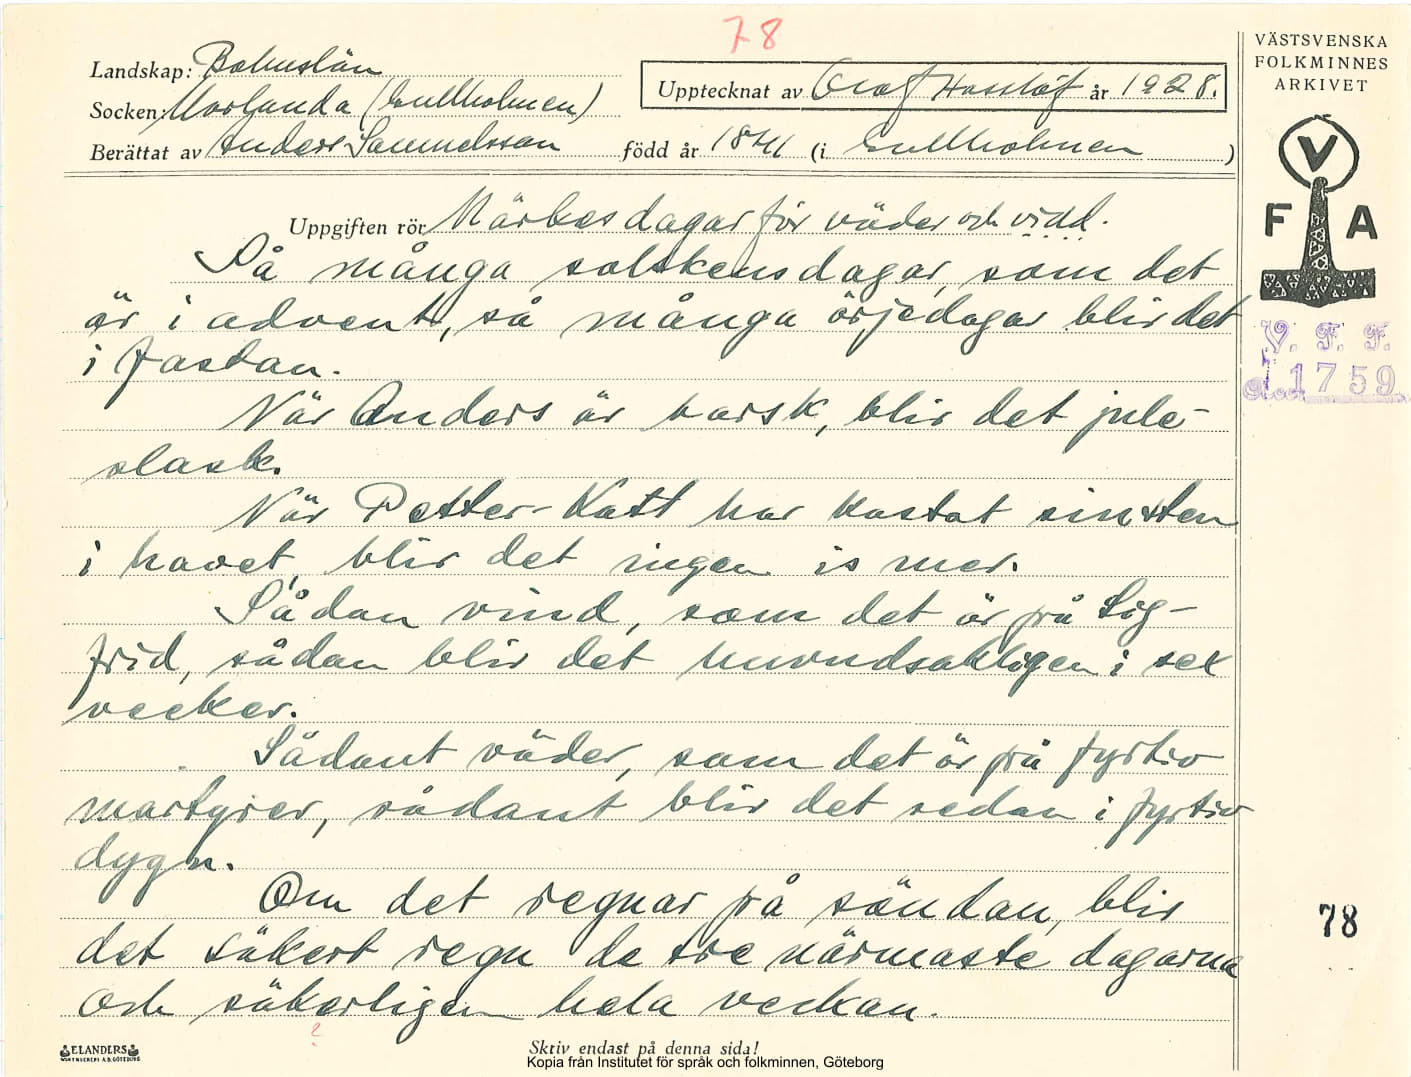 78
Landskap: Bohuslän
Socken: Morlanda (Gullholmen)
Berättat av Anders Samuelsson
Upptecknat av Olof Hasslöf år 1928.
född år 1841 (i Gullholmen)
VÄSTSVENSKA
FOLKMINNES
ARKIVET
V
F A
V. F. F.
1759
Uppgiften rör Märkesdagar för väder och vind.
Så många solskensdagar, som det
är i advent, så många örjedagar blir det
i fastan.
När Anders är barsk, blir det jule-
slask.
När Petter-Katt har kastat sin sten
i havet, blir det ingen is mer.
Sådan vind, som det är på Sig-
frid, sådan blir det huvudsakligen i sex
veckor.
Sådant väder, som det är på fyrtio
martyrer, sådant blir det sedan i fyrtio
dygn.
Om det regnar på söndan, blir
det säkert regn de tre närmaste dagarna
och säkerligen hela veckan.
?
78
ELANDERS
Skriv endast på denna sida!
Kopia från Institutet för språk och folkminnen, Göteborg